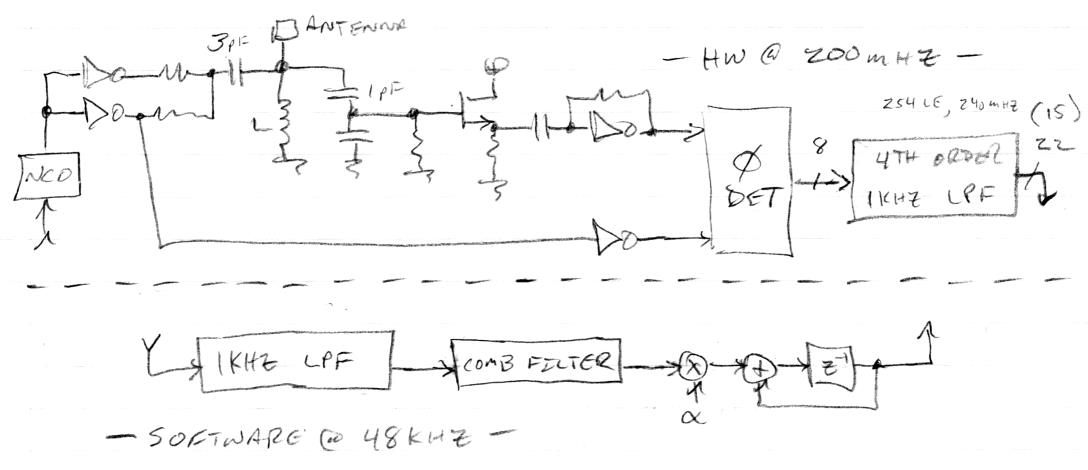 ANTENNA
3pF
— HW @ 200mHZ —
1pF
L
254 LE, 240mHZ
(15)
22
8
NCO
Ø
DET
4TH ORDER
1KHZ LPF
1KHZ LPF
COMB FILTER
X
+
Z⁻¹
α
— SOFTWARE @ 48KHZ —